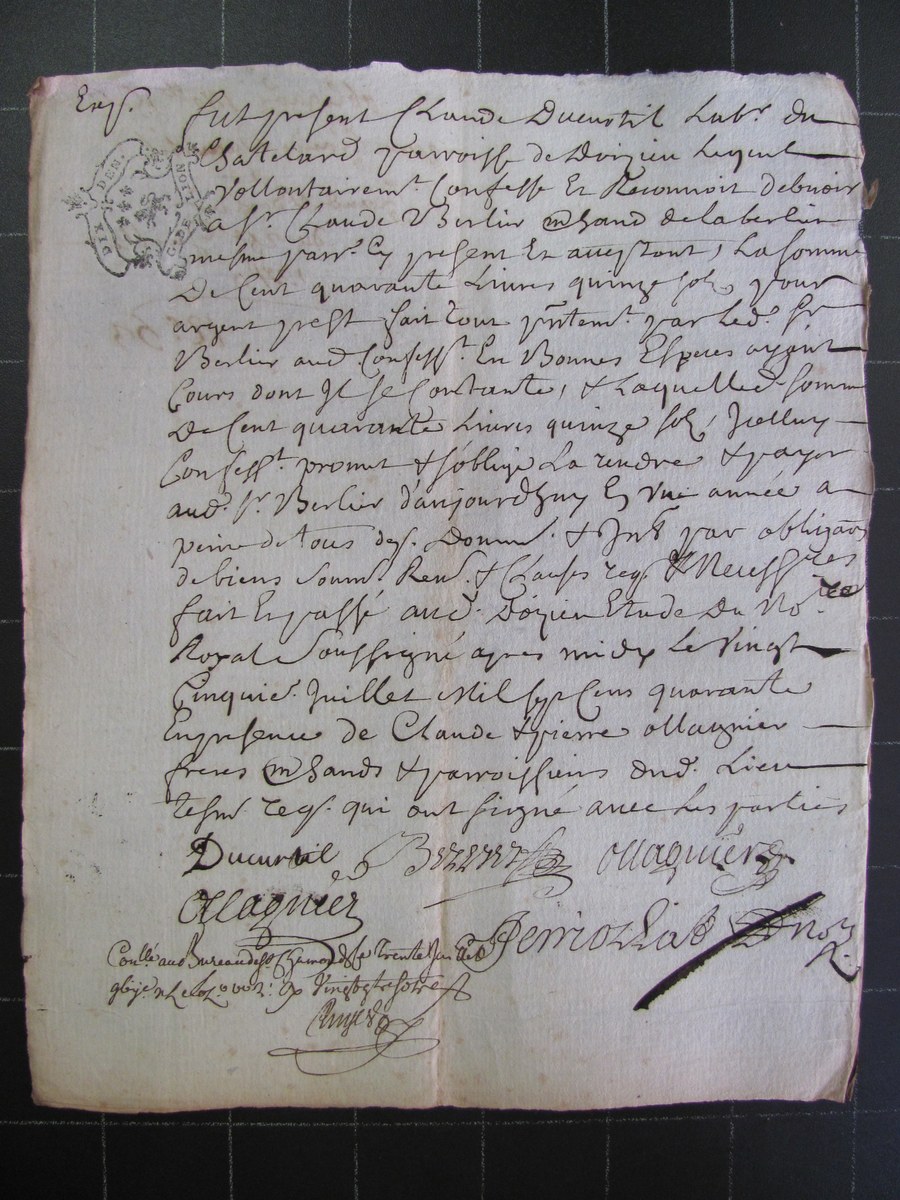 Exp.
DIX DEN.
G. DE
Fut present Claude Ducurtil Labr. du
Chatelard parroisse de Doizieu Lequel
Vollontairemt. Confesse Et Reconnoit debvoir
a Sr. Claude Berlier mhand de la berlier
mesme parr. Cy present Et acceptant, La somme
De Cent quarante Livres quinze sols, pour
argent prest fait tout pntemt. par Led. Sr
Berlier aud Confesst. En Bonnes Especes ayant
Cours dont Il se Contante, & Laquelle d. somme
De Cent quarante Livres quinze sols, Icelluy
Confesst. promet & s'oblige La rendre & payer
aud. Sr. Berlier d'aujourdhuy En Une année a
peine de tous des. Domm. & Intt par obligaon
de biens soum. Ren. & Clauses req. & Necessres
fait Et passé aud. Dozieu Etude Du Nore
Royal Soussigné apres midy Le Vingt
Cinquie. Juillet Mil sept Cens quarante
En presence de Claude & pierre ollagnier
freres mhands & parroissiens dud. Lieu
tesm. req. qui ont signé avec Les parties
Ducurtil Berlier Ollagnier
Ollagnier
Conllé. au Bureau de St Chamond Le Trente Juillet